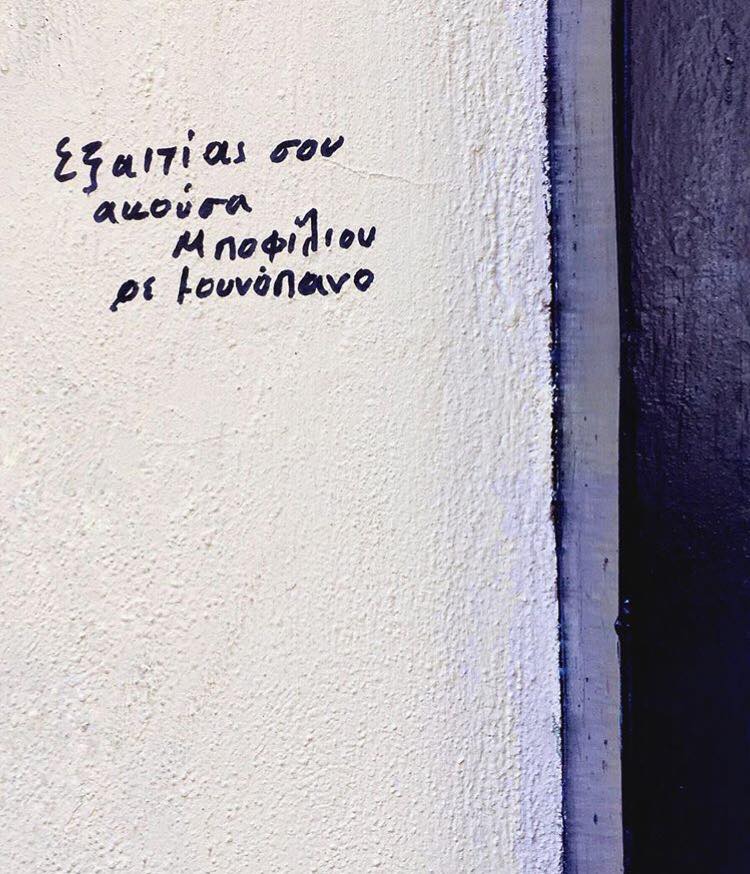 εξαιτίας σου
ακούσα
Μποφίλιου
ρε μουνόπανο